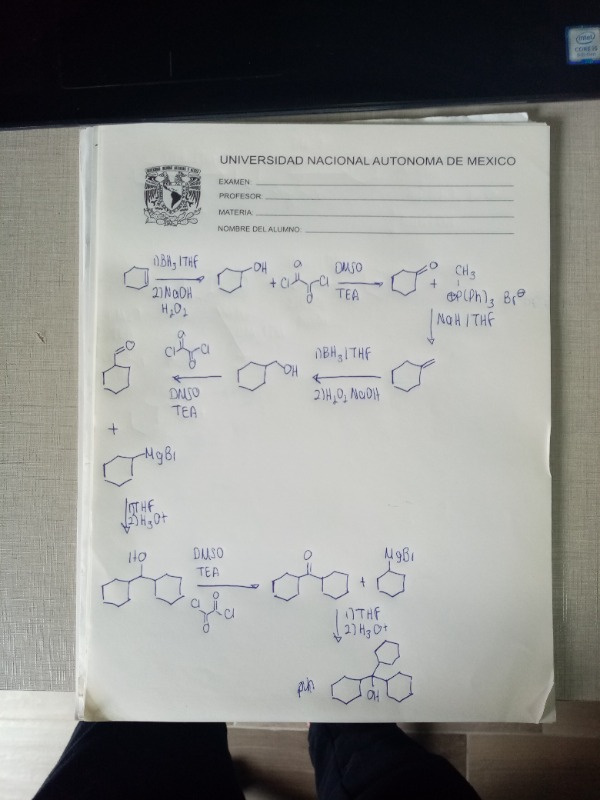 intel
CORE i5
UNIVERSIDAD NACIONAL AUTONOMA DE MEXICO
EXAMEN:
PROFESOR:
MATERIA:
NOMBRE DEL ALUMNO:
1)BH3/THF
2)NaOH
H2O2
OH
+
Cl
O
O
Cl
DMSO
TEA
O
+
CH3
⊕P(Ph)3 Br⊖
NaH/THF
1)BH3/THF
2)H2O2 NaOH
OH
Cl
O
O
Cl
DMSO
TEA
O
+
MgBr
1)THF
2)H3O+
HO
DMSO
TEA
Cl
O
O
Cl
O
+
MgBr
1)THF
2)H3O+
OH